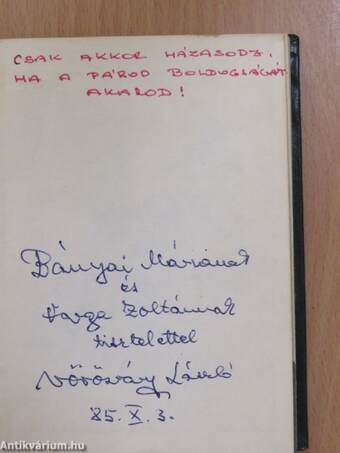 CSAK AKKOR HÁZASODJ,
HA A PÁROD BOLDOGSÁGÁT
AKAROD!
Bányai Máriának
és
Varga Zoltánnak
tisztelettel
Vörösváry László
85. X. 3.
Antikvárium.hu